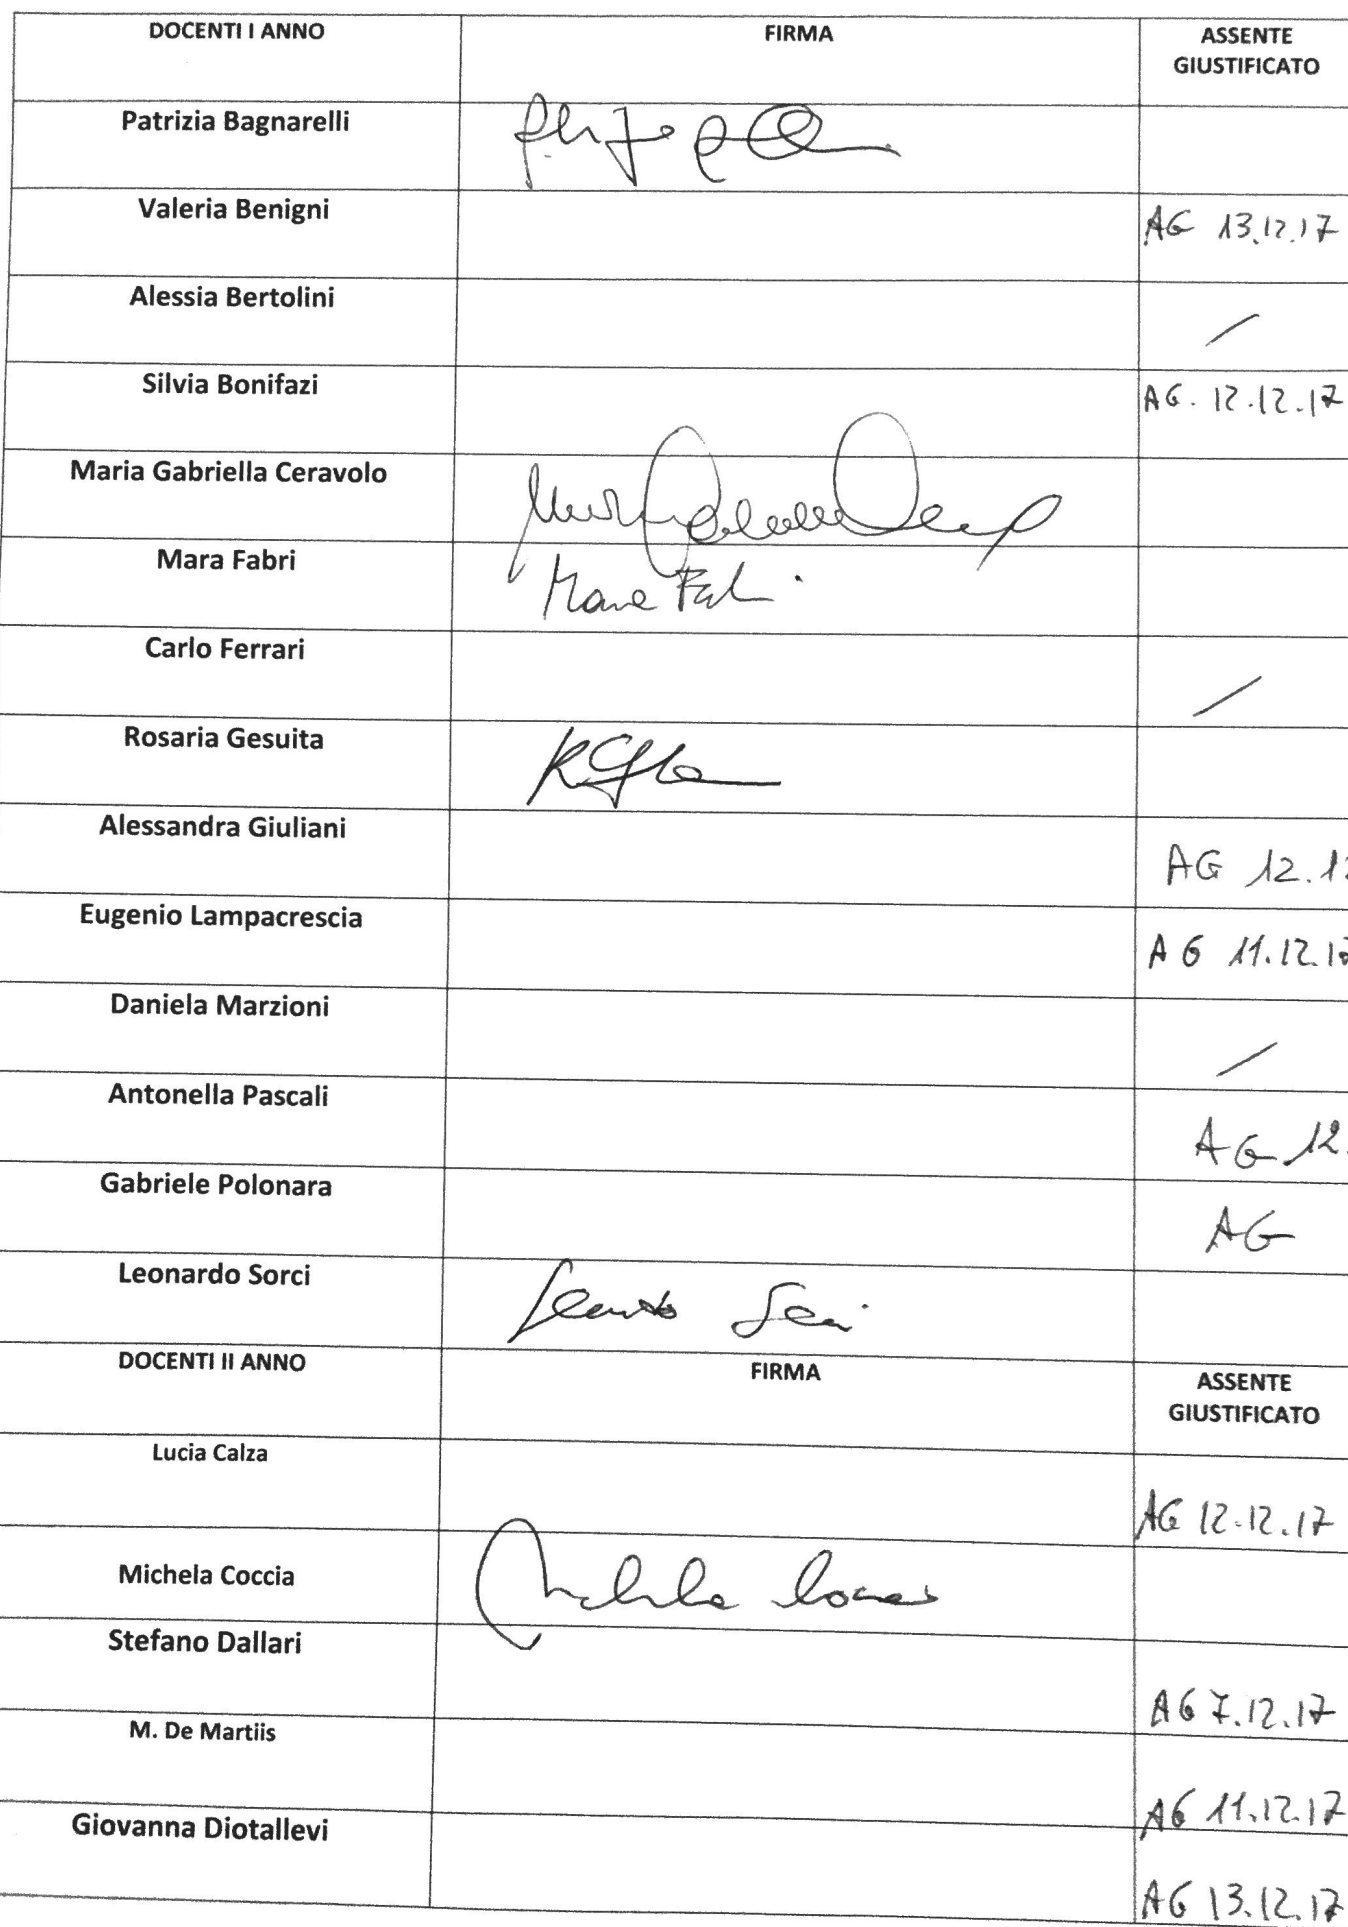 DOCENTI I ANNO FIRMA ASSENTE
GIUSTIFICATO
Patrizia Bagnarelli
Valeria Benigni AG 13.12.17
Alessia Bertolini /
Silvia Bonifazi AG. 12.12.17
Maria Gabriella Ceravolo
Mara Fabri Mara Fabri
Carlo Ferrari /
Rosaria Gesuita
Alessandra Giuliani AG 12.12
Eugenio Lampacrescia AG 11.12.17
Daniela Marzioni /
Antonella Pascali AG 12.
Gabriele Polonara AG
Leonardo Sorci Leonardo Sorci
DOCENTI II ANNO FIRMA ASSENTE
GIUSTIFICATO
Lucia Calza AG 12.12.17
Michela Coccia Michela Coccia
Stefano Dallari AG 7.12.17
M. De Martiis AG 11.12.17
Giovanna Diotallevi AG 13.12.17